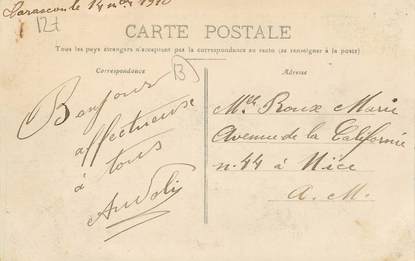 Tarascon le 14 1910
127
CARTE POSTALE
Tous les pays étrangers n'acceptent pas la correspondance au recto (se renseigner à la poste)
Correspondance
B
Adresse
Bonjour
affectueuse
à
tous
Mlle Roux Marie
Avenue de la Californie
n. 44 à Nice
A. M.